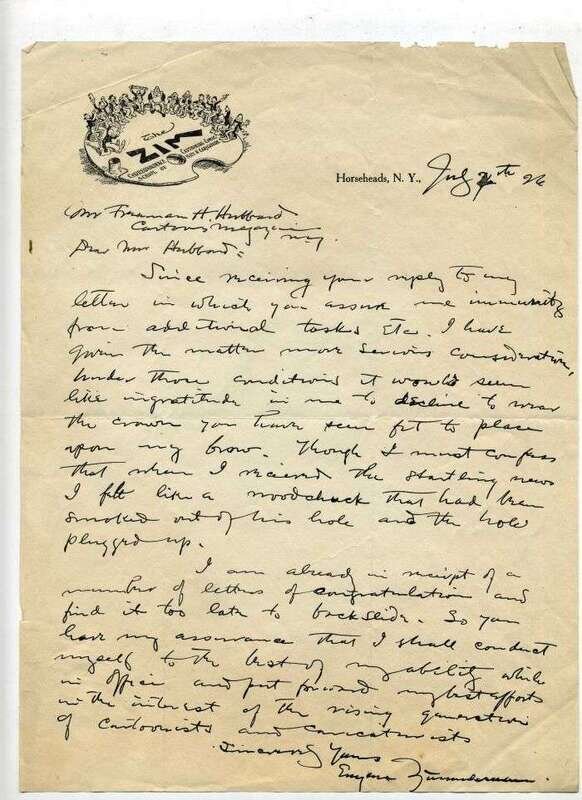 The
ZIM
CORRESPONDENCE
SCHOOL OF
CARTOONING, COMIC
ART & CARICATURE
Horseheads, N. Y., July 7th 26
Mr Freeman H. Hubbard
Cartoons Magazine
N.Y.
Dear Mr Hubbard:
Since receiving your reply to my
letter in which you assure me immunity
from additional tasks Etc. I have
given the matter more serious consideration,
Under those conditions it would seem
like ingratitude in me to decline to wear
the crown you have seen fit to place
upon my brow. Though I must confess
that when I recieved the startling news
I felt like a woodchuck that had been
smoked out of his hole and the hole
plugged up.
I am already in receipt of a
number of letters of congratulation and
find it too late to backslide. So you
have my assurance that I shall conduct
myself to the best of my ability while
in office and put forward my best efforts
in the interest of the rising generation
of cartoonists and caricaturists
Sincerely Yours
Eugene Zimmerman.